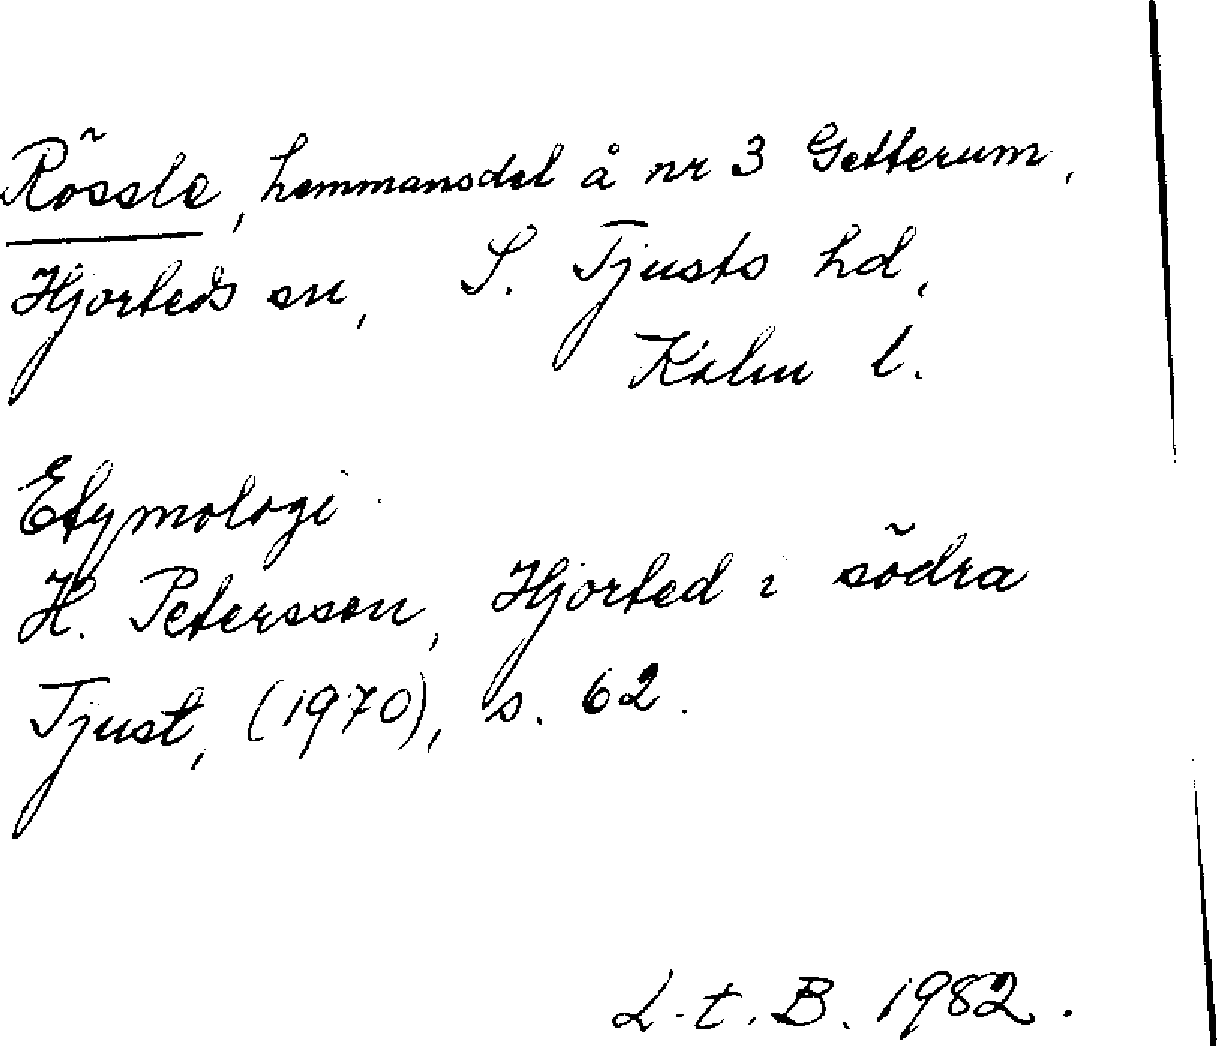 Rössle, hemmansdel å nr 3 Getterum,
Hjorteds sn, S. Tjusts hd,
Kalm l.
Etymologi
H. Petersson, Hjorted i södra
Tjust, (1970), s. 62.
L.t.B. 1982.